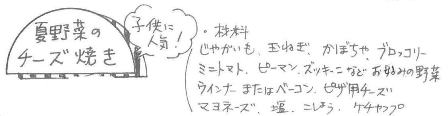 夏野菜の
チーズ焼き
子供に
人気！
・材料
じゃがいも、玉ねぎ、かぼちゃ、ブロッコリー
ミニトマト、ピーマン、ズッキーニなど お好みの野菜
ウインナー またはベーコン、ピザ用チーズ
マヨネーズ、塩、こしょう、ケチャップ